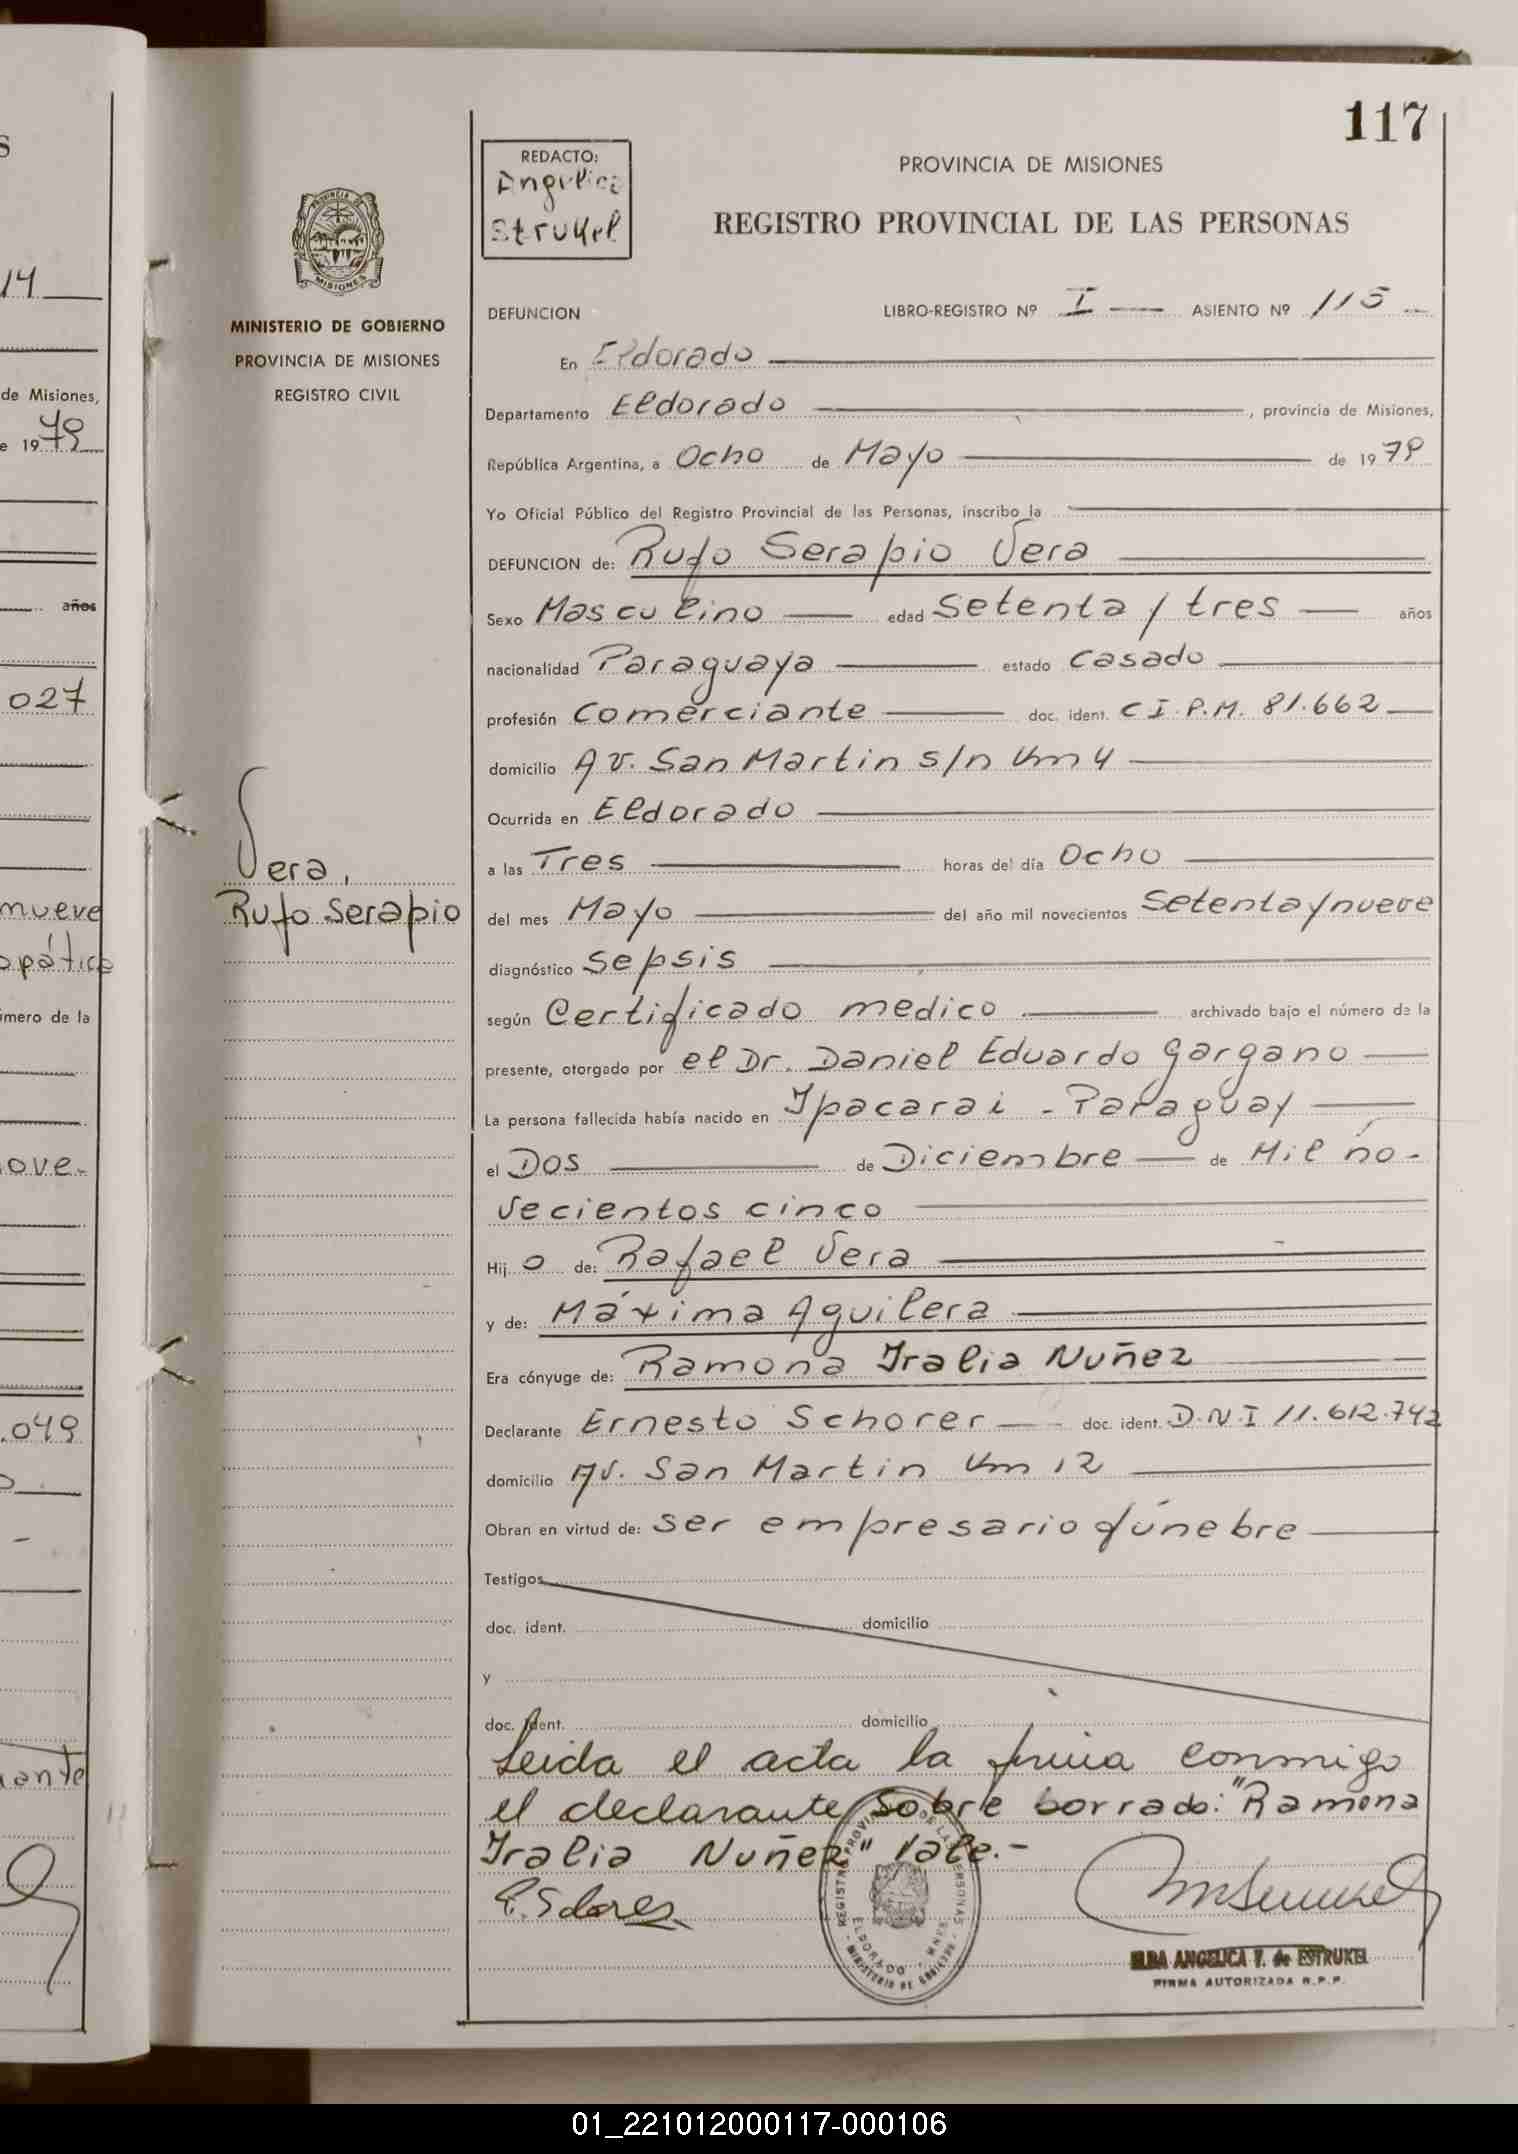 S
14
de Misiones,
e 1979
años
027
nueve
opática
úmero de la
ove-
.049
ante
117
REDACTO:
Angelica
Strukel
PROVINCIA DE MISIONES
REGISTRO PROVINCIAL DE LAS PERSONAS
PROVINCIA DE
MISIONES
MINISTERIO DE GOBIERNO
PROVINCIA DE MISIONES
REGISTRO CIVIL
Vera,
Rufo Serapio
DEFUNCION LIBRO-REGISTRO Nº I ASIENTO Nº 115
En Eldorado
Departamento Eldorado, provincia de Misiones,
República Argentina, a Ocho de Mayo de 1979
Yo Oficial Público del Registro Provincial de las Personas, inscribo la
DEFUNCION de: Rufo Serapio Vera
Sexo Masculino edad Setenta y tres años
nacionalidad Paraguaya estado Casado
profesión Comerciante doc. ident. C I. P.M. 81.662
domicilio Av. San Martin s/n Km 4
Ocurrida en Eldorado
a las Tres horas del día Ocho
del mes Mayo del año mil novecientos Setenta y nueve
diagnóstico Sepsis
según Certificado medico archivado bajo el número de la
presente, otorgado por el Dr. Daniel Eduardo Gargano
La persona fallecida había nacido en Ipacarai - Paraguay
el Dos de Diciembre de Mil no-
vecientos cinco
Hij o de: Rafael Vera
y de: Máxima Aguilera
Era cónyuge de: Ramona Iralia Nuñez
Declarante Ernesto Schorer doc. ident. D.N.I 11.612.742
domicilio Av. San Martin Km 12
Obran en virtud de: ser empresario fúnebre
Testigos
doc. ident. domicilio
y
doc. ident. domicilio
Leida el acta la firma conmigo
el declarante, Sobre borrado: "Ramona
Iralia Nuñez" Vale.-
REGISTRO PROVINCIAL DE LAS PERSONAS
ELDORADO - MNES.
MINISTERIO DE GOBIERNO
ELBA ANGELICA V. de ESTRUKEL
FIRMA AUTORIZADA R.P.P.
01_221012000117-000106